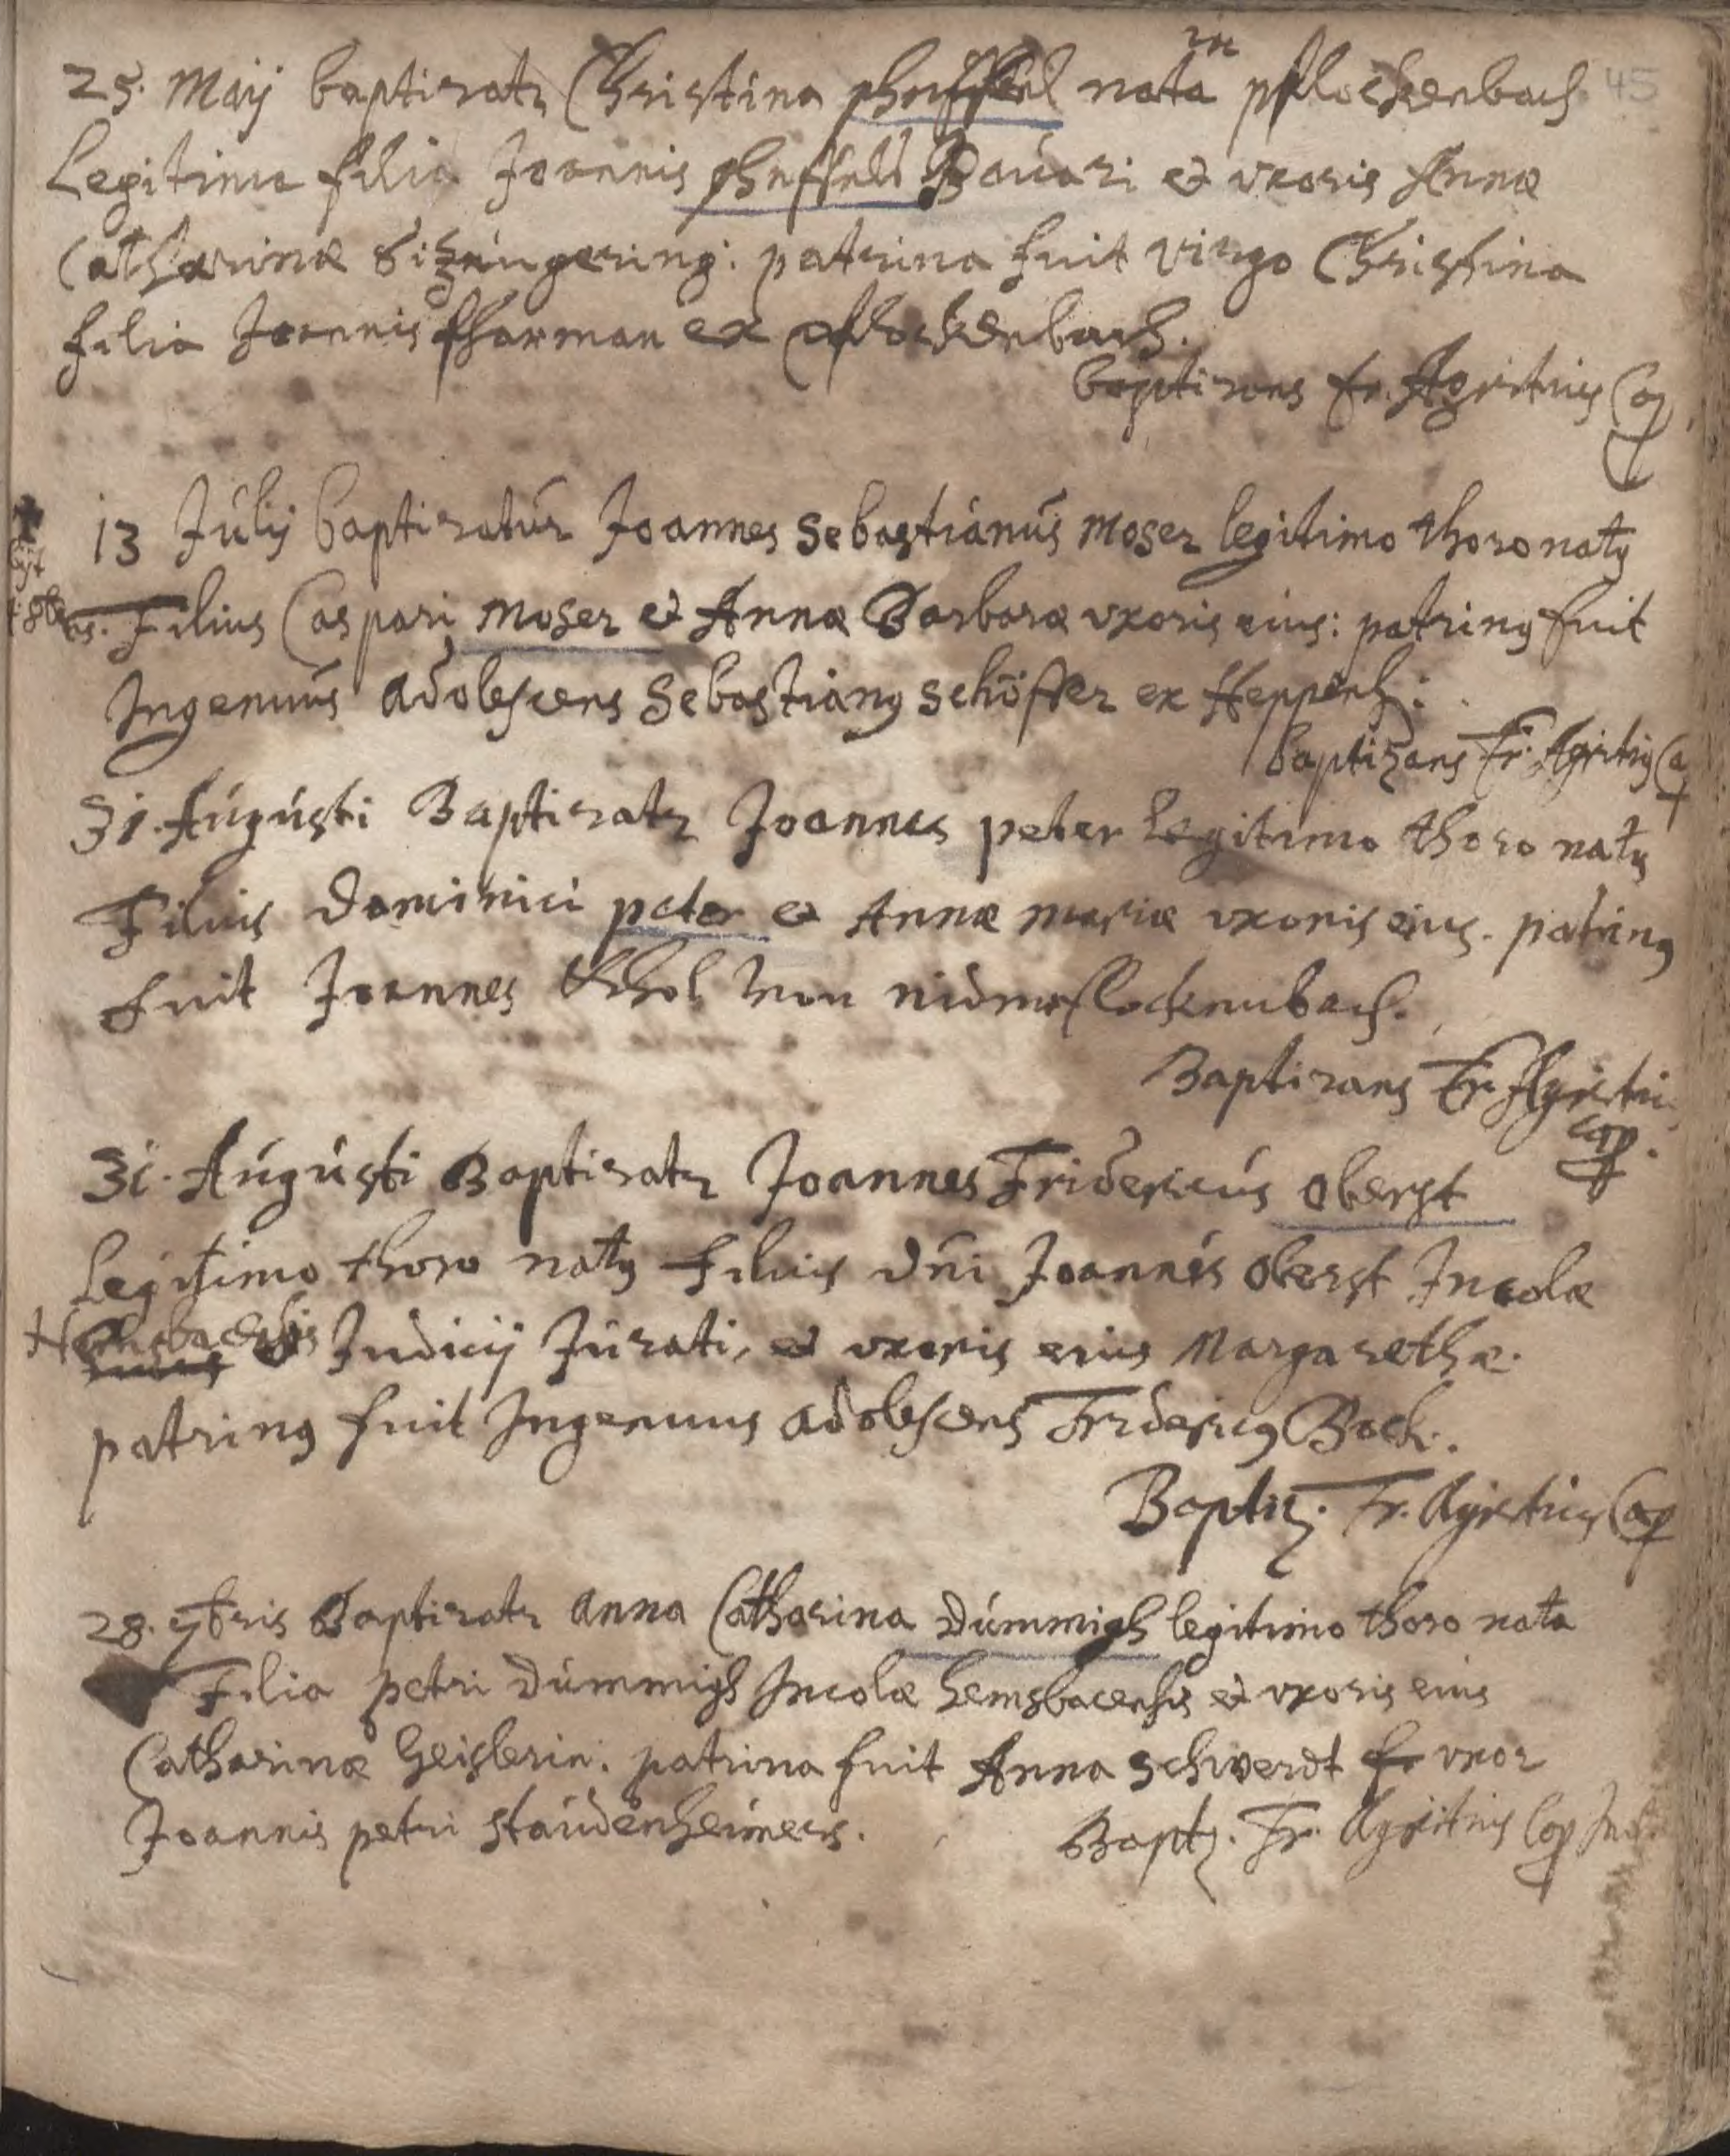 45
25. Maij baptizatr Christina nata in pflockenbach
Legitima filia Joannis Bavari et uxoris Annæ
Catharinæ patrina fuit virgo Christina
filia Joannis pharman ex pflockenbach.
baptizans fr. Agritius Cap
13 Julij baptizatur Joannes Sebastianus Moser legitimo thoro natus
Filius Caspari Moser et Annæ Barbaræ uxoris eius: patrinus fuit
Ingenuus adolescens Sebastianus Schöffer ex Heppenh:
baptizans Fr. Agritius Cap
31. Augusti Baptizatr Joannes peter Legitimo thoro natus
Filius Dominici peter et Annæ mariæ uxoris eius. patrinus
fuit Joannes von
Baptizans Fr. Agritius
Cap.
31. Augusti Baptizatr Joannes Fridericus Oberst
Legitimo thoro natus filius Dni Joannis Oberst Incolæ
Hemsbacensis Judicij Jurati, et uxoris eius Margarethæ.
patrinus fuit Ingenuus adolescens Fridericus Bock.
Baptiz. Fr. Agritius Cap
28. 7bris Baptizatr Anna Catharina Dümmigh legitimo thoro nata
Filia petri Dümmigh Incolæ hemsbacensis et uxoris eius
Catharinæ Geislerin. patrina fuit Anna Schwerdt uxor
Joannis petri Staudenheimers. Baptz. Fr. Agritius Cap